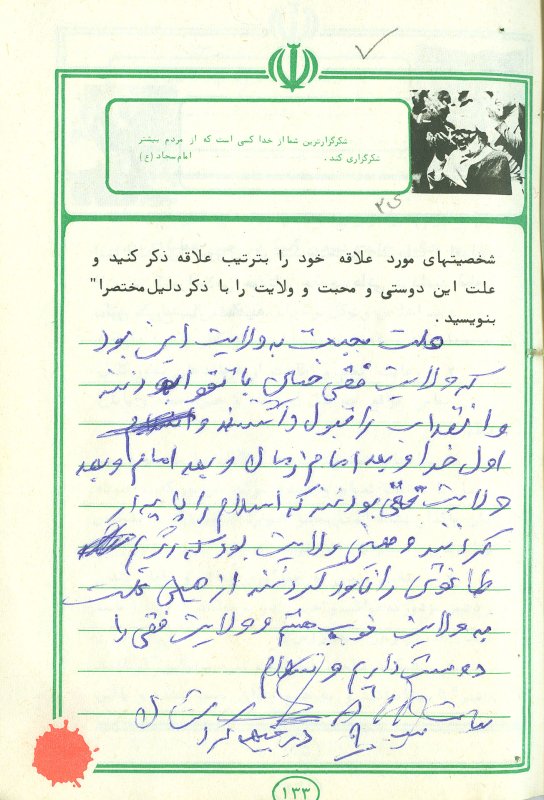 شکرگزارترین شما از خدا کسی است که از مردم بیشتر
شکرگزاری کند . امام سجاد (ع)
شخصیتهای مورد علاقه خود را بترتیب علاقه ذکر کنید و
علت این دوستی و محبت و ولایت را با ذکر دلیل مختصرا"
بنویسید .
علت به ولایت این بود
که ولایت فقی خیلی با تقوا بودند
و انقلاب را قبول داشتند و
اول خدا و بعد امام زمان و بعد امام و بعد
ولایت فقی بودند که اسلام را پایدار
کردند و همین ولایت بود که رژیم
طاغوتی را نابود کردند از
به ولایت خوب هستم و ولایت فقی را
دوست دارم والسلام
۱۳۳